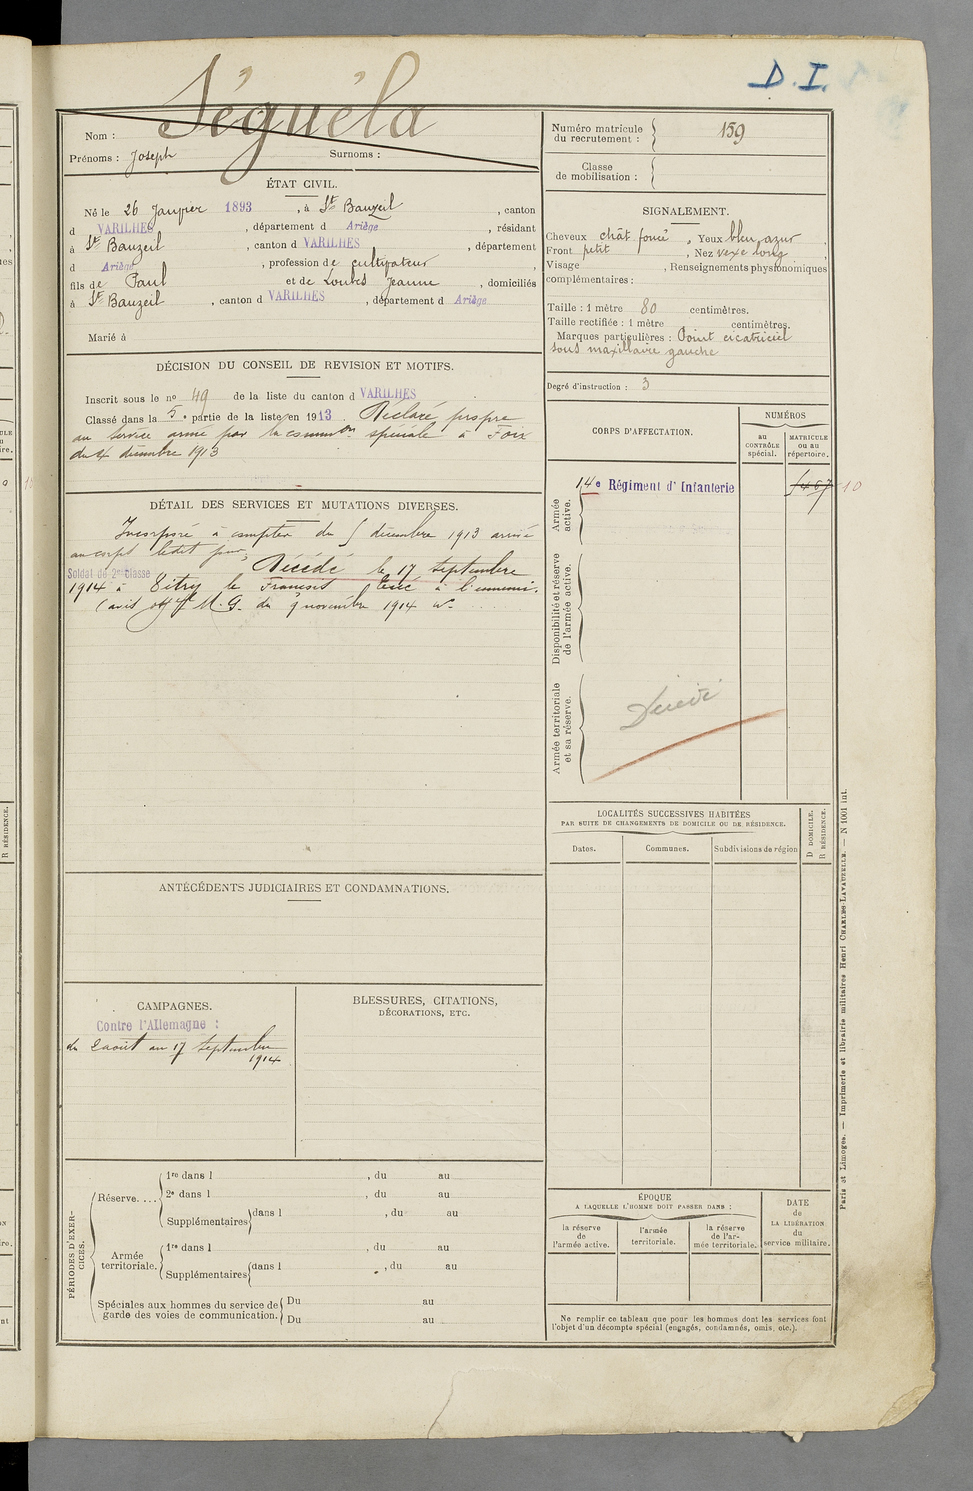 D. I.
Séguéla
Nom :
Prénoms : Joseph Surnoms :
Numéro matricule du recrutement : 159
Classe de mobilisation :
ÉTAT CIVIL.
Né le 26 Janvier 1893, à St Bauzeil, canton
d VARILHES, département d Ariège, résidant
à St Bauzeil, canton d VARILHES, département
d Ariège, profession de cultivateur,
fils de Paul et de Loubes Jeanne, domiciliés
à St Bauzeil, canton d VARILHES, département d Ariège
Marié à
SIGNALEMENT.
Cheveux chât foncé, Yeux bleu azur,
Front petit, Nez vexe long,
Visage , Renseignements physionomiques
complémentaires :
Taille : 1 mètre 80 centimètres.
Taille rectifiée : 1 mètre centimètres.
Marques particulières : Point cicatriciel
sous maxillaire gauche
Degré d'instruction : 3
DÉCISION DU CONSEIL DE REVISION ET MOTIFS.
Inscrit sous le no 49 de la liste du canton d VARILHES
Classé dans la 5e partie de la liste en 1913. Déclaré propre
au service armé par la common spéciale à Foix
du 4 décembre 1913
DÉTAIL DES SERVICES ET MUTATIONS DIVERSES.
Incorporé à compter du 5 décembre 1913 arrivé
au corps ledit jour,
Soldat de 2me classe
Décédé le 17 septembre
1914 à Vitry le François tué à l'ennemi.
(avis off el M. G. du 9 novembre 1914
CORPS D'AFFECTATION.
NUMÉROS
au CONTRÔLE spécial.
MATRICULE ou au répertoire.
Armée active.
14e Régiment d'Infanterie
10
Disponibilité et réserve de l'armée active.
Armée territoriale et sa réserve.
Décédé
LOCALITÉS SUCCESSIVES HABITÉES
PAR SUITE DE CHANGEMENTS DE DOMICILE OU DE RÉSIDENCE.
Dates. Communes. Subdivisions de région
D DOMICILE.
R RÉSIDENCE.
ANTÉCÉDENTS JUDICIAIRES ET CONDAMNATIONS.
CAMPAGNES.
Contre l'Allemagne :
du 2 août au 17 septembre
1914
BLESSURES, CITATIONS,
DÉCORATIONS, ETC.
PÉRIODES D'EXERCICES.
Réserve....
1re dans l , du au
2e dans l , du au
Supplémentaires dans l , du au
Armée territoriale.
1re dans l , du au
Supplémentaires dans l , du au
Spéciales aux hommes du service de
garde des voies de communication.
Du au
Du au
ÉPOQUE
A LAQUELLE L'HOMME DOIT PASSER DANS :
la réserve de l'armée active.
l'armée territoriale.
la réserve de l'armée territoriale.
DATE de LA LIBÉRATION du service militaire.
Ne remplir ce tableau que pour les hommes dont les services font
l'objet d'un décompte spécial (engagés, condamnés, omis, etc.).
Paris et Limoges. — Imprimerie et librairie militaires Henri CHARLES-LAVAUZELLE. — N 1001 int.
R RÉSIDENCE.